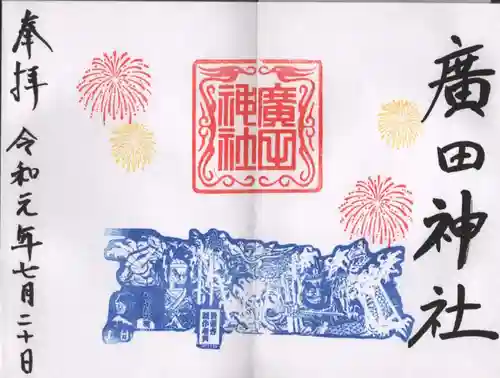 廣田神社
廣田
神社
奉拝
令和元年七月二十日